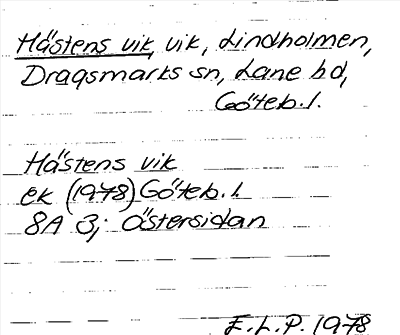 Hästens vik, vik, Lindholmen,
Dragsmarks sn, Lane hd,
Göteb. l.
Hästens vik
ek (1978) Göteb. l.
8A 3; Östersidan
E.L.P. 1978